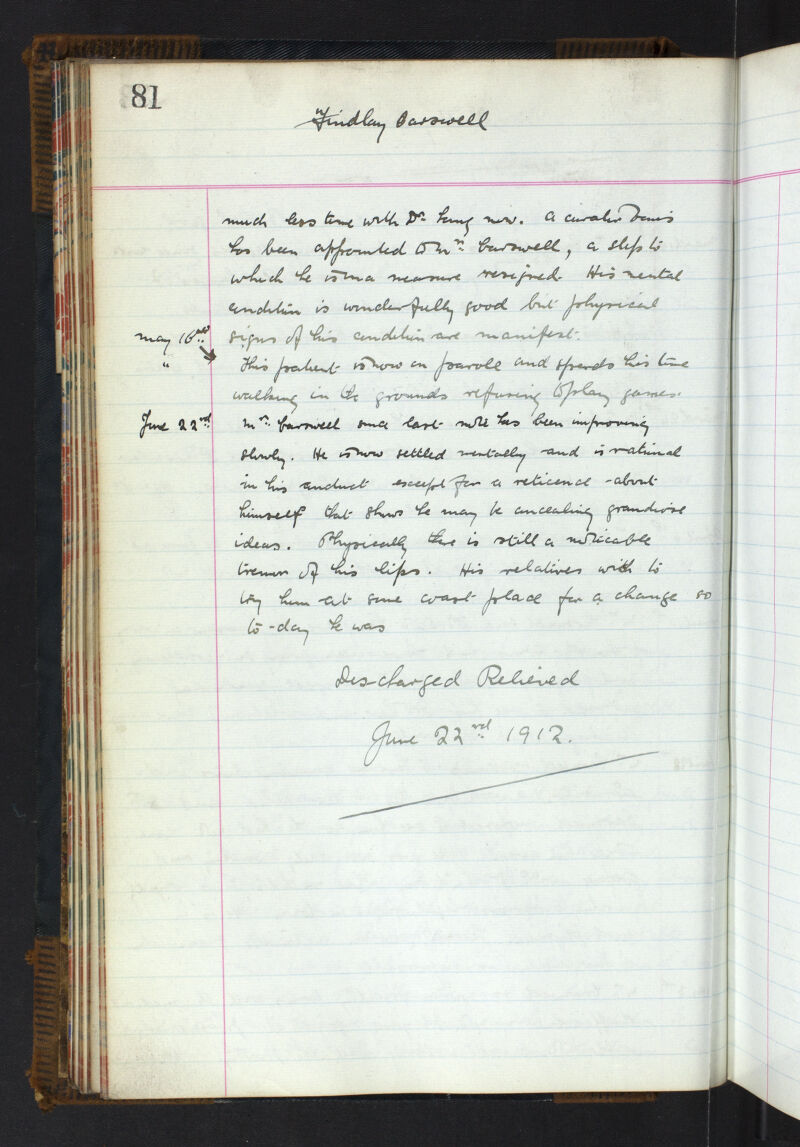 81
Findlay Carswell
much less time with Dr. Lang now. A curator bonis
has been appointed to Mr. Carswell, a step to
which he is in a measure resigned. His mental
condition is wonderfully good but physical
May 16th signs of his condition are manifest.
" This patient is now on parole and spends his time
walking in the grounds refusing to play games.
June 22nd Mr. Carswell since last note has been improving
slowly. He is now settled mentally and is rational
in his conduct except for a reticence about
himself that shows he may be concealing grandiose
ideas. Physically there is still a noticable
tremor of his lips. His relatives wish to
try him at some coast place for a change so
to-day he was
Discharged Relieved
June 22nd 1912.